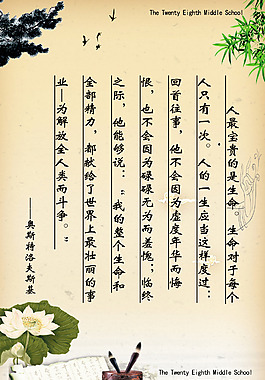 The Twenty Eighth Middle School
人最宝贵的是生命。生命对于每个
人只有一次。人的一生应当这样度过：
回首往事，他不会因为虚度年华而悔
恨，也不会因为碌碌无为而羞愧；临终
之际，他能够说：“我的整个生命和
全部精力，都献给了世界上最壮丽的事
业—为解放全人类而斗争。”
——奥斯特洛夫斯基
The Twenty Eighth Middle School